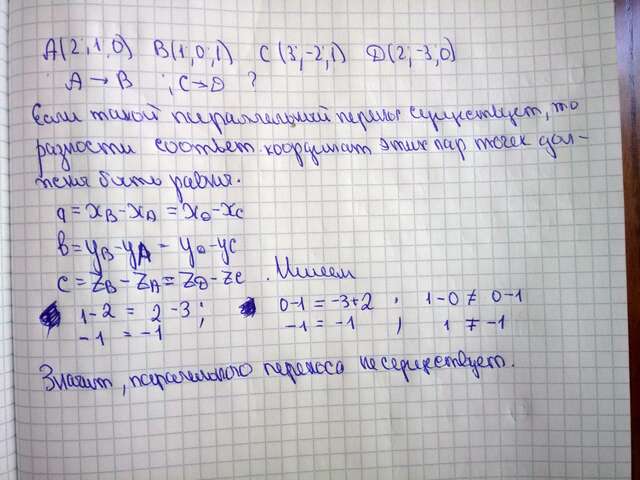 A(2;1;0) B(1;0;1) C(3;-2;1) D(2;-3;0)
A → B ; C → D ?
Если такой параллельный перенос существует, то
разности соответ. координат этих пар точек дол-
жны быть равны.
a = x_B - x_A = x_D - x_C
b = y_B - y_A = y_D - y_C
c = z_B - z_A = z_D - z_C . Имеем
1-2 = 2-3 ; 0-1 = -3+2 , 1-0 ≠ 0-1
-1 = -1 -1 = -1 , 1 ≠ -1
Значит, параллельного переноса не существует.